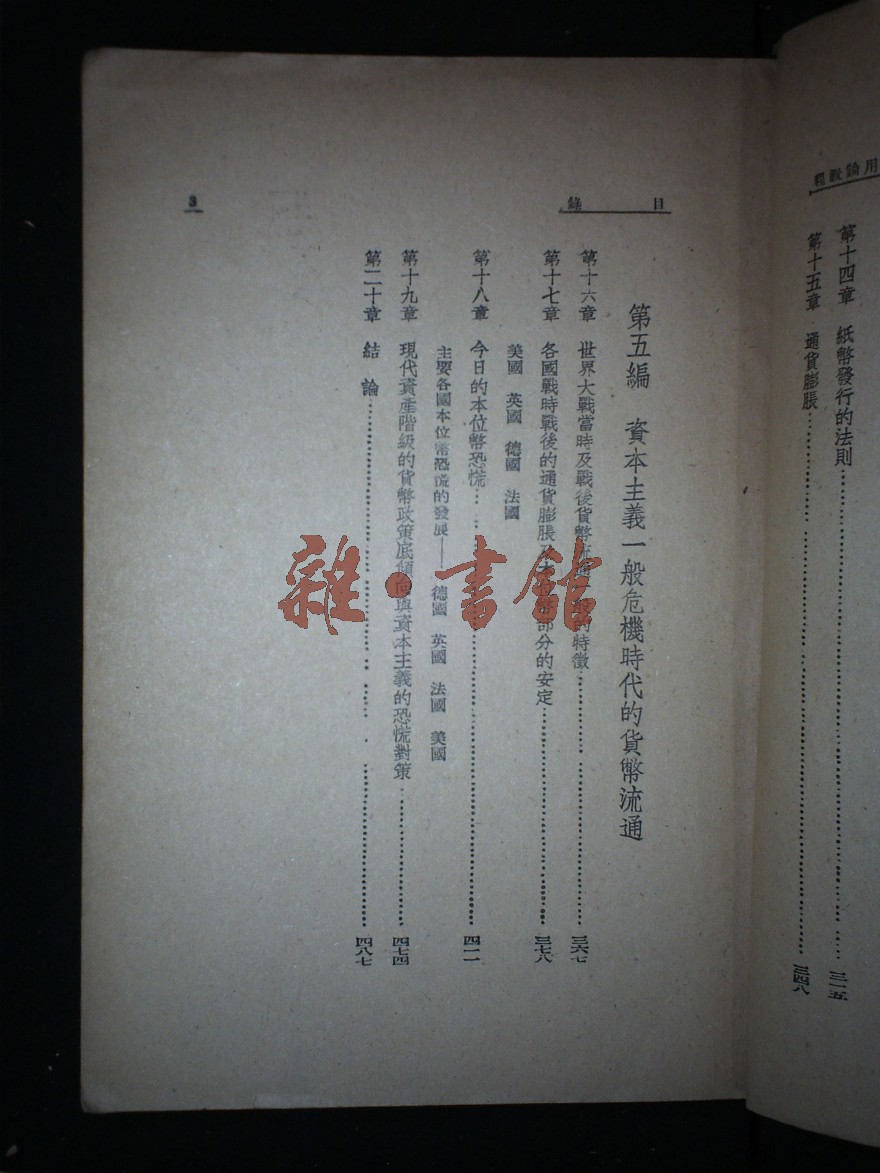 用論毅穎
第十四章 紙幣發行的法則 三一五
第十五章 通貨膨脹 三四八
目錄
3
第五編 資本主義一般危機時代的貨幣流通
第十六章 世界大戰當時及戰後貨幣流通一般的特徵 三六七
第十七章 各國戰時戰後的通貨膨脹及本位幣部分的安定 三七八
美國 英國 德國 法國
第十八章 今日的本位幣恐慌 四一一
主要各國本位幣恐慌的發展——德國 英國 法國 美國
第十九章 現代資產階級的貨幣政策底傾向與資本主義的恐慌對策 四七四
第二十章 結論 四八七
雜·書館